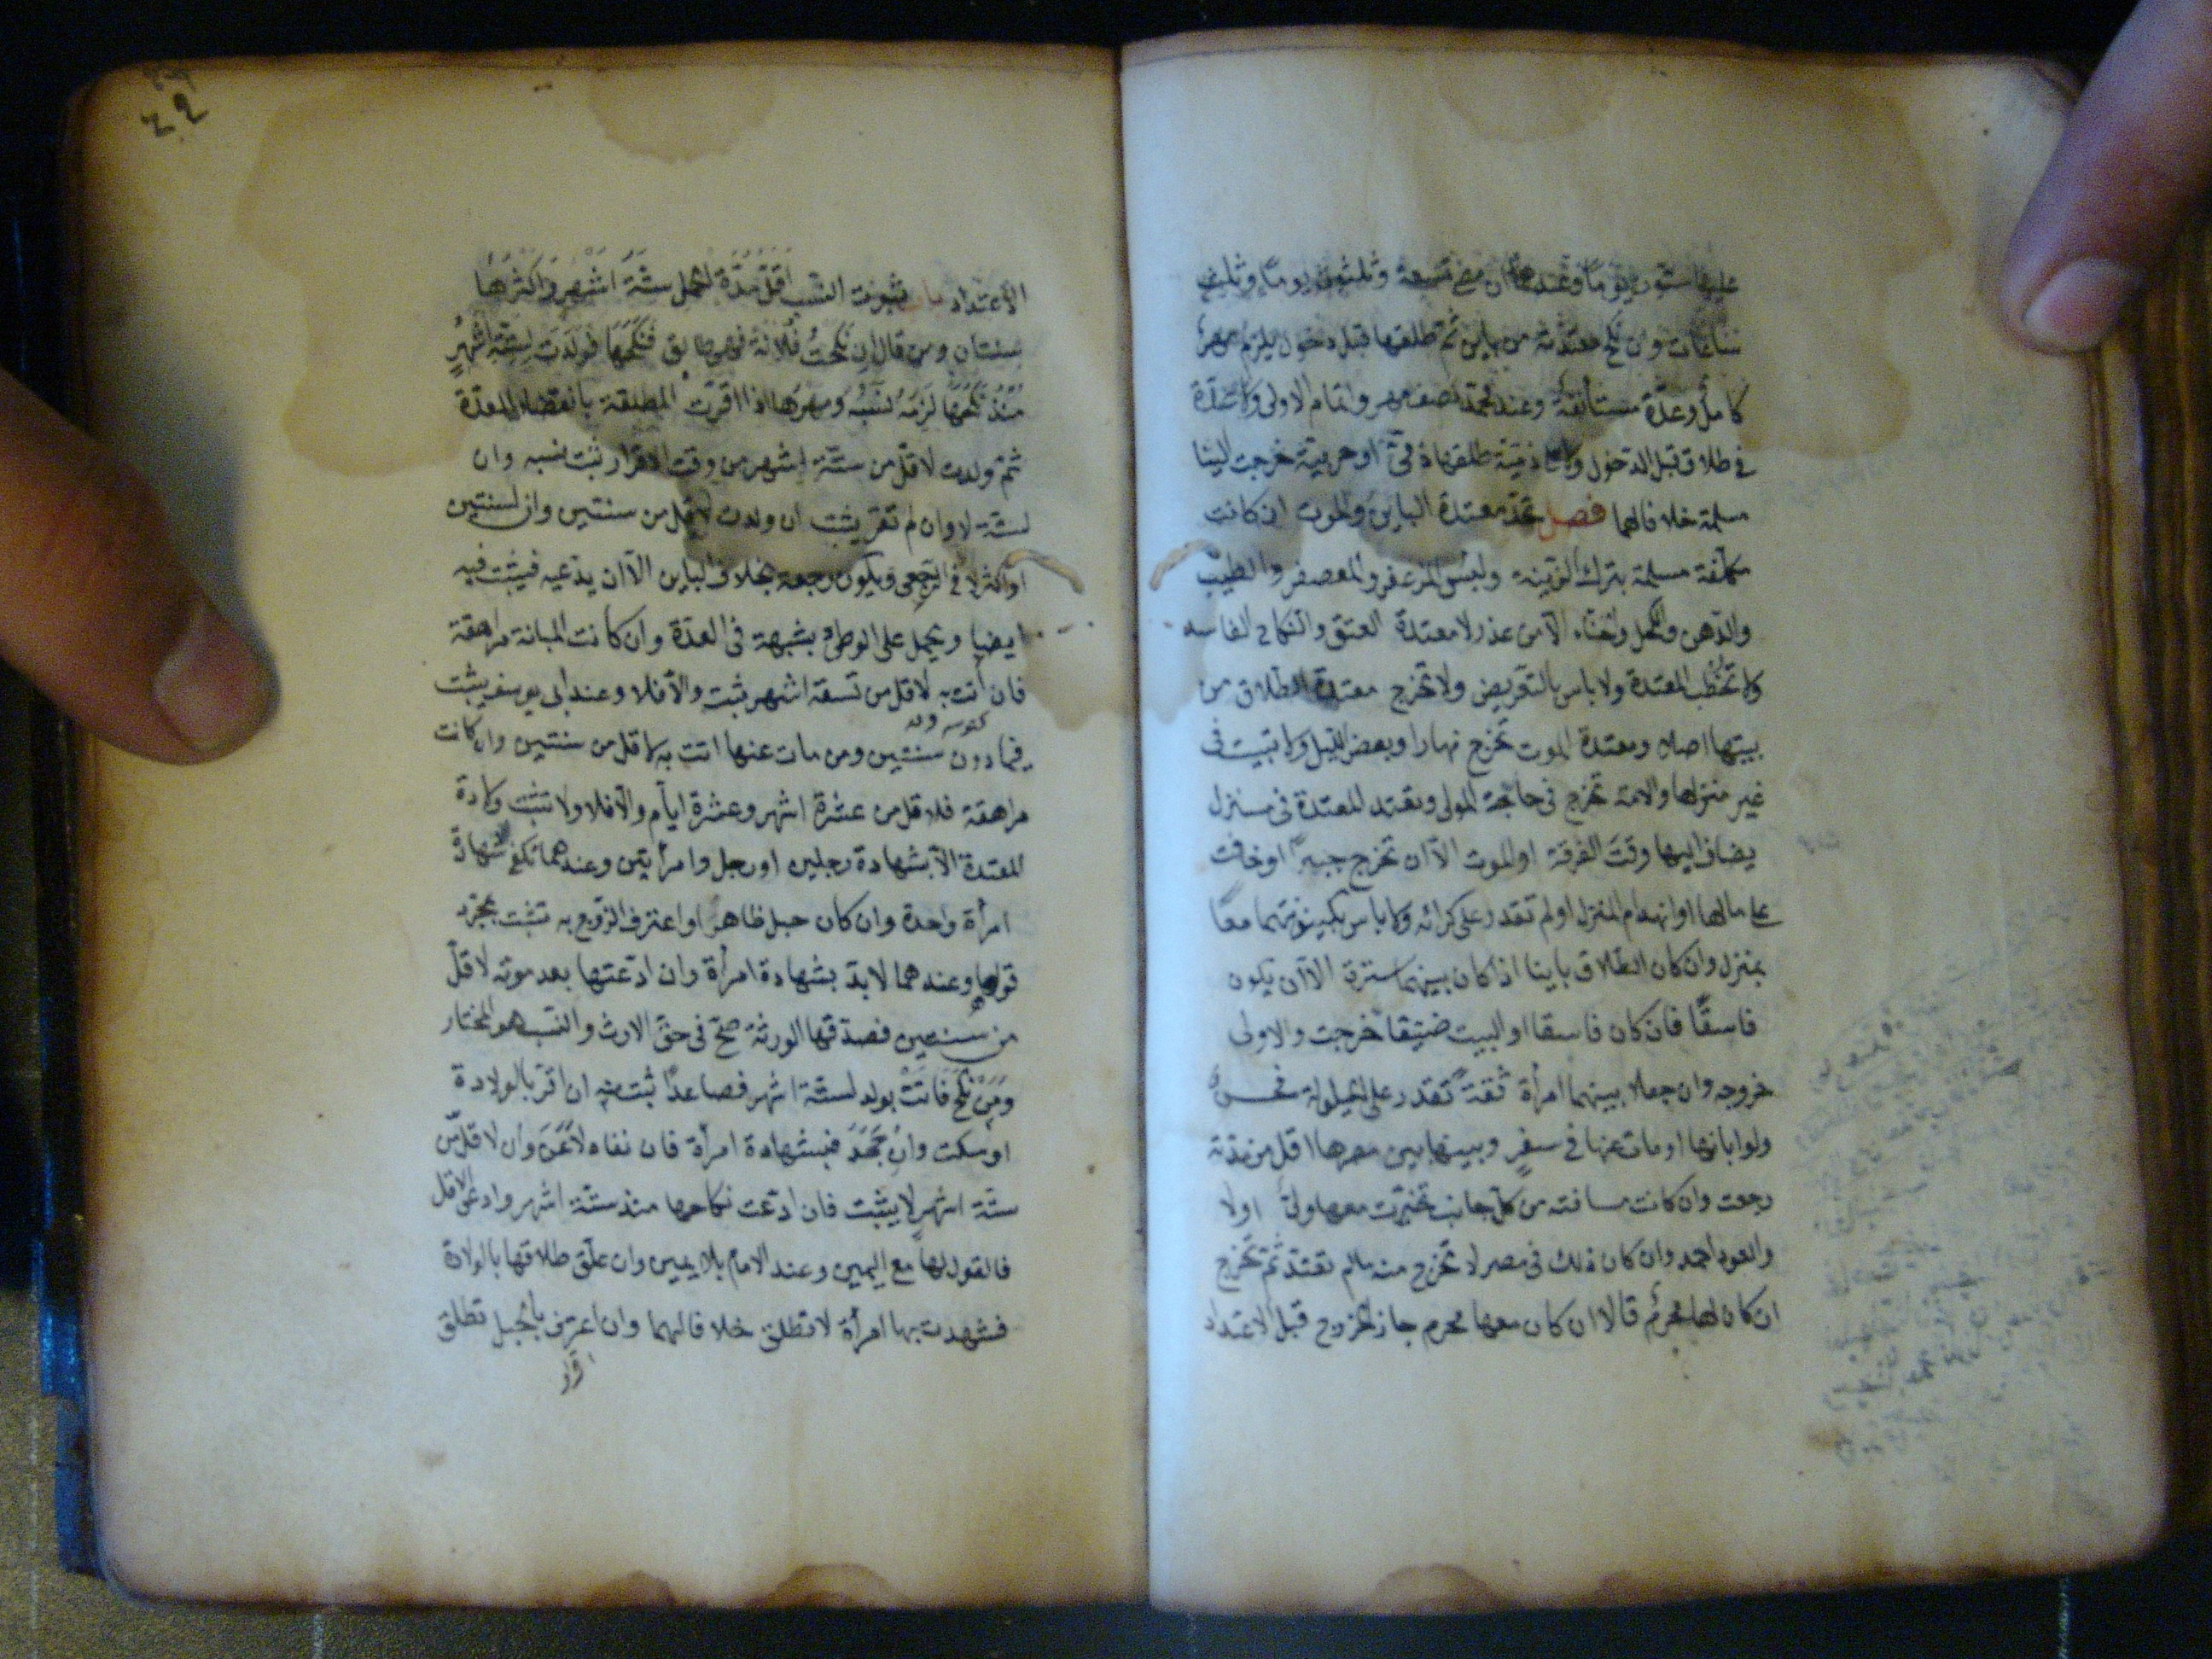 عليها ستون يوما وعندهما ان مضى تسعة وثلثون يوما وثلث
ساعات وان نكح معتدته من باين ثم طلقها قبل دخول يلزم مهر
كامل وعدة مستأنفة وعند محمد نصف مهر واتمام الاولى ولا عدة
في طلاق قبل الدخول ولا ذمية طلقها ذمى او حربية خرجت الينا
مسلمة خلافا لهما فصل تحد معتدة الباين والموت ان كانت
مكلفة مسلمة بترك الزينة ولبس المزعفر والمعصفر والطيب
والدهن والكحل والحناء الا من عذر لا معتدة العتق والنكاح الفاسد
ولا تخطب المعتدة ولا باس بالتعريض ولا تخرج معتدة الطلاق من
بيتها اصلا ومعتدة الموت تخرج نهارا وبعض الليل ولا تبيت فى
غير منزلها والامة تخرج فى حاجة المولى وتعتد المعتدة فى منزل
يضاف اليها وقت الفرقة او الموت الا ان تخرج جبرا او خافت
على مالها او انهدام المنزل او لم تقدر على كرائه ولا باس بكينونتهما معا
بمنزل وان كان الطلاق باينا اذا كان بينهما سترة الا ان يكون
فاسقا فان كان فاسقا او البيت ضيقا خرجت والاولى
خروجه وان جعلا بينهما امرأة ثقة تقدر على الحيلولة فحسن
ولو ابانها او مات عنها فى سفر وبينها وبين مصرها اقل من مدته
رجعت وان كانت مسافته من كل جانب تخيرت معها ولى اولا
والعود احمد وان كان ذلك فى مصر لا تخرج منه مالم تعتد ثم تخرج
ان كان لها محرم قالا ان كان معها محرم جاز الخروج قبل الاعتداد
٤٩
الاعتداد باب ثبوت النسب اقل مدة الحمل ستة اشهر واكثرها
سنتان ومن قال ان نكحت فلانة فهى طالق فنكحها فولدت لستة اشهر
منذ نكحها لزمه نسبه ومهرها اذا اقرت المطلقة بانقضاء العدة
ثم ولدت لاقل من ستة اشهر من وقت الاقرار ثبت نسبه وان
لستة لا وان لم تقر يثبت ان ولدت لاقل من سنتين وان لسنتين
او اكثر لا فى الرجعى ويكون رجعة بخلاف الباين الا ان يدعيه فيثبت فيه
ايضا ويحمل على الوطئ بشبهة فى العدة وان كانت المبانة مراهقة
فان اتت به لاقل من تسعة اشهر ثبت والا فلا وعند ابى يوسف يثبت
فيما دون سنتين ومن مات عنها اتت به لاقل من سنتين وان كانت
مراهقة فلاقل من عشرة اشهر وعشرة ايام والا فلا ولا تثبت ولادة
المعتدة الا بشهادة رجلين او رجل وامرأتين وعندهما تكفى شهادة
امرأة واحدة وان كان حبل ظاهر او اعترف الزوج به تثبت بمجرد
قولها وعندهما لابد بشهادة امرأة وان ادعتها بعد موته لاقل
من سنتين فصدقها الورثة صح فى حق الارث والنسب هو المختار
ومن نكح فاتت بولد لستة اشهر فصاعدا ثبت منه ان اقر بالولادة
او سكت وان جحد فبشهادة امرأة فان نفاه لاعن وان لاقل من
ستة اشهر لا يثبت فان ادعت نكاحها منذ ستة اشهر وادعى الاقل
فالقول لها مع اليمين وعند الامام بلا يمين وان علق طلاقها بالولادة
فشهدت بها امرأة لا تطلق خلافا لهما وان اعترف بالحبل تطلق